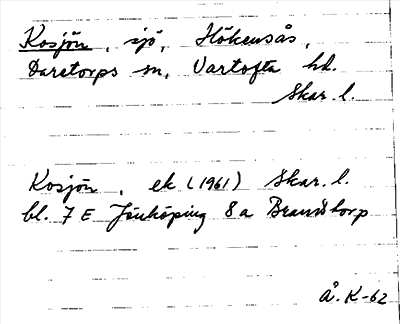 Kosjön, sjö, Hökensås,
Daretorps sn, Vartofta hd.
Skar. l.
Kosjön, ek (1961) Skar. l.
bl. 7 E Jönköping 8a Brandstorp
Å. K-62